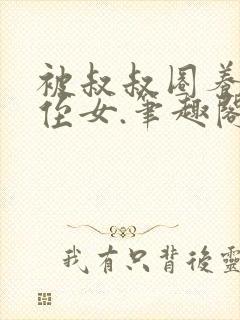 被叔叔圈养
侄女.笔趣阁
我有只背後靈